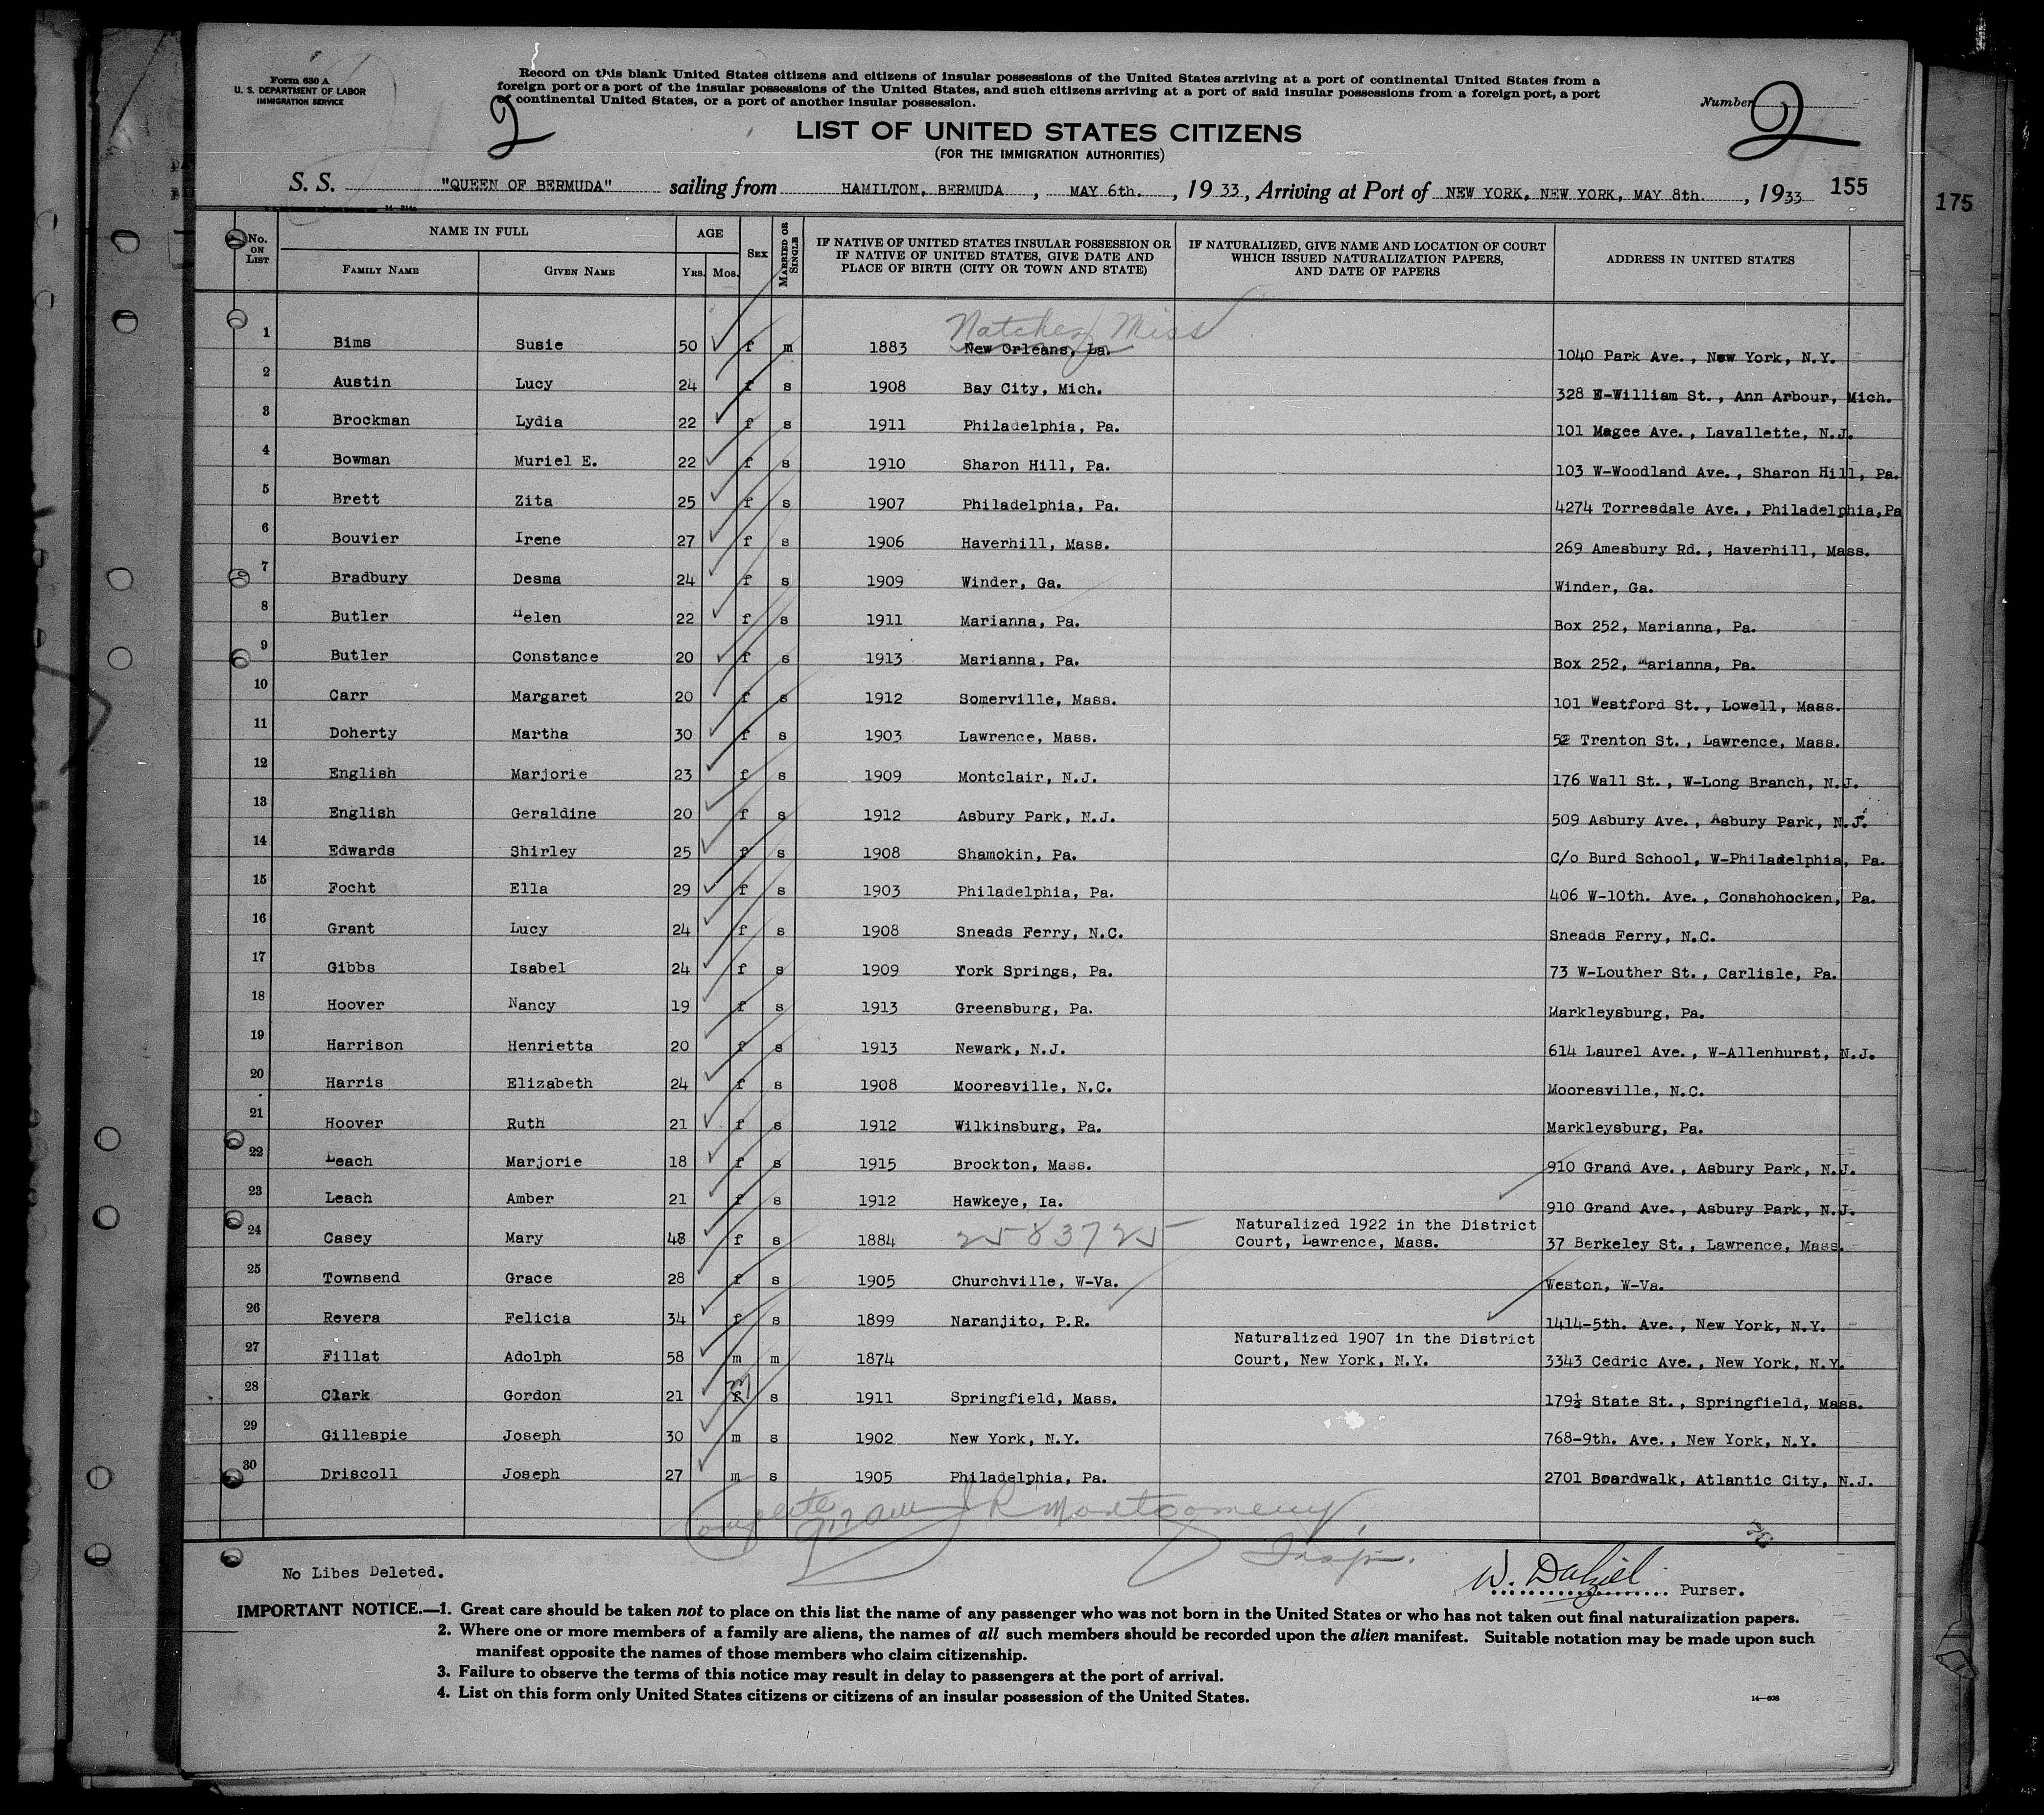 Form 630 A
U. S. DEPARTMENT OF LABOR
IMMIGRATION SERVICE
Record on this blank United States citizens and citizens of insular possessions of the United States arriving at a port of continental United States from a
foreign port or a port of the insular possessions of the United States, and such citizens arriving at a port of said insular possessions from a foreign port, a port
of continental United States, or a port of another insular possession.
Number 2
2
LIST OF UNITED STATES CITIZENS
(FOR THE IMMIGRATION AUTHORITIES)
S. S. "QUEEN OF BERMUDA" sailing from HAMILTON, BERMUDA, MAY 6th., 1933, Arriving at Port of NEW YORK, NEW YORK, MAY 8th., 1933 155
175
No. ON LIST NAME IN FULL FAMILY NAME GIVEN NAME AGE YRS. MOS. SEX MARRIED OR SINGLE IF NATIVE OF UNITED STATES INSULAR POSSESSION OR IF NATIVE OF UNITED STATES, GIVE DATE AND PLACE OF BIRTH (CITY OR TOWN AND STATE) IF NATURALIZED, GIVE NAME AND LOCATION OF COURT WHICH ISSUED NATURALIZATION PAPERS, AND DATE OF PAPERS ADDRESS IN UNITED STATES
Natchez Miss
1 Bims Susie 50 f m 1883 New Orleans, La. 1040 Park Ave., New York, N.Y.
2 Austin Lucy 24 f s 1908 Bay City, Mich. 328 E-William St., Ann Arbour, Mich.
3 Brockman Lydia 22 f s 1911 Philadelphia, Pa. 101 Magee Ave., Lavallette, N.J.
4 Bowman Muriel E. 22 f s 1910 Sharon Hill, Pa. 103 W-Woodland Ave., Sharon Hill, Pa.
5 Brett Zita 25 f s 1907 Philadelphia, Pa. 4274 Torresdale Ave., Philadelphia,Pa
6 Bouvier Irene 27 f s 1906 Haverhill, Mass. 269 Amesbury Rd., Haverhill, Mass.
7 Bradbury Desma 24 f s 1909 Winder, Ga. Winder, Ga.
8 Butler Helen 22 f s 1911 Marianna, Pa. Box 252, Marianna, Pa.
9 Butler Constance 20 f s 1913 Marianna, Pa. Box 252, Marianna, Pa.
10 Carr Margaret 20 f s 1912 Somerville, Mass. 101 Westford St., Lowell, Mass.
11 Doherty Martha 30 f s 1903 Lawrence, Mass. 52 Trenton St., Lawrence, Mass.
12 English Marjorie 23 f s 1909 Montclair, N.J. 176 Wall St., W-Long Branch, N.J.
13 English Geraldine 20 f s 1912 Asbury Park, N.J. 509 Asbury Ave., Asbury Park, N.J.
14 Edwards Shirley 25 f s 1908 Shamokin, Pa. C/o Burd School, W-Philadelphia, Pa.
15 Focht Ella 29 f s 1903 Philadelphia, Pa. 406 W-10th. Ave., Conshohocken, Pa.
16 Grant Lucy 24 f s 1908 Sneads Ferry, N.C. Sneads Ferry, N.C.
17 Gibbs Isabel 24 f s 1909 York Springs, Pa. 73 W-Louther St., Carlisle, Pa.
18 Hoover Nancy 19 f s 1913 Greensburg, Pa. Markleysburg, Pa.
19 Harrison Henrietta 20 f s 1913 Newark, N.J. 614 Laurel Ave., W-Allenhurst, N.J.
20 Harris Elizabeth 24 f s 1908 Mooresville, N.C. Mooresville, N.C.
21 Hoover Ruth 21 f s 1912 Wilkinsburg, Pa. Markleysburg, Pa.
22 Leach Marjorie 18 f s 1915 Brockton, Mass. 910 Grand Ave., Asbury Park, N.J.
23 Leach Amber 21 f s 1912 Hawkeye, Ia. 910 Grand Ave., Asbury Park, N.J.
24 Casey Mary 48 f s 1884 2583725 Naturalized 1922 in the District Court, Lawrence, Mass. 37 Berkeley St., Lawrence, Mass.
25 Townsend Grace 28 f s 1905 Churchville, W-Va. Weston, W-Va.
26 Revera Felicia 34 f s 1899 Naranjito, P.R. 1414-5th. Ave., New York, N.Y.
27 Fillat Adolph 58 m m 1874 Naturalized 1907 in the District Court, New York, N.Y. 3343 Cedric Ave., New York, N.Y.
28 Clark Gordon 21 f m s 1911 Springfield, Mass. 179½ State St., Springfield, Mass.
29 Gillespie Joseph 30 m s 1902 New York, N.Y. 768-9th. Ave., New York, N.Y.
30 Driscoll Joseph 27 m s 1905 Philadelphia, Pa. 2701 Boardwalk, Atlantic City, N.J.
Complete R Montgomery
Insp.
No Libes Deleted.
W. Dalziel Purser.
IMPORTANT NOTICE.—1. Great care should be taken not to place on this list the name of any passenger who was not born in the United States or who has not taken out final naturalization papers.
2. Where one or more members of a family are aliens, the names of all such members should be recorded upon the alien manifest. Suitable notation may be made upon such
manifest opposite the names of those members who claim citizenship.
3. Failure to observe the terms of this notice may result in delay to passengers at the port of arrival.
4. List on this form only United States citizens or citizens of an insular possession of the United States.
14—608